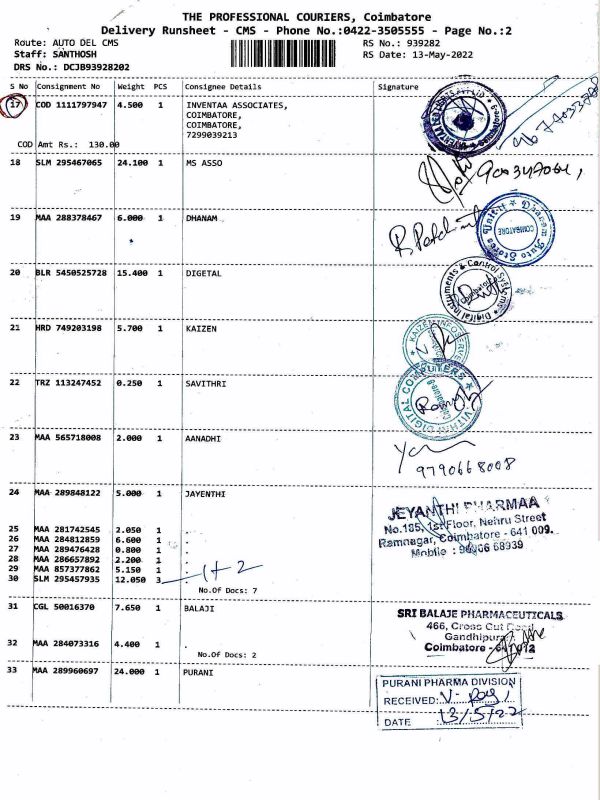 THE PROFESSIONAL COURIERS, Coimbatore
Delivery Runsheet - CMS - Phone No.:0422-3505555 - Page No.:2
Route: AUTO DEL CMS
RS No.: 939282
Staff: SANTHOSH
RS Date: 13-May-2022
DRS No.: DCJB93928202
S No Consignment No Weight PCS Consignee Details Signature
17 COD 1111797947 4.500 1 INVENTAA ASSOCIATES,
COIMBATORE,
COIMBATORE,
7299039213
COD Amt Rs.: 130.00
18 SLM 295467065 24.100 1 MS ASSO
19 MAA 288378467 6.000 1 DHANAM
COIMBATORE
20 BLR 5450525728 15.400 1 DIGETAL
Digital Instruments & Control Systems
21 HRD 749203198 5.700 1 KAIZEN
KAIZEN INFOSERVE
22 TRZ 113247452 0.250 1 SAVITHRI
DIGITAL COMPUTERS
23 MAA 565718008 2.000 1 AANADHI
9790668008
24 MAA 289848122 5.000 1 JAYENTHI
JEYANTHI PHARMAA
No.185, 1st Floor, Nehru Street
Ramnagar, Coimbatore - 641 009.
Mobile : 98966 68939
25 MAA 281742545 2.050 1 .
26 MAA 284812859 6.600 1 .
27 MAA 289476428 0.800 1 .
28 MAA 286657892 2.200 1 .
29 MAA 857377862 5.150 1 .
30 SLM 295457935 12.050 3 .
1+2
No.Of Docs: 7
31 CGL 50016370 7.650 1 BALAJI
SRI BALAJE PHARMACEUTICALS
466, Cross Cut Road
Gandhipuram
Coimbatore - 641012
32 MAA 284073316 4.400 1 .
No.Of Docs: 2
33 MAA 289960697 24.000 1 PURANI
PURANI PHARMA DIVISION
RECEIVED:
DATE 13/5/22